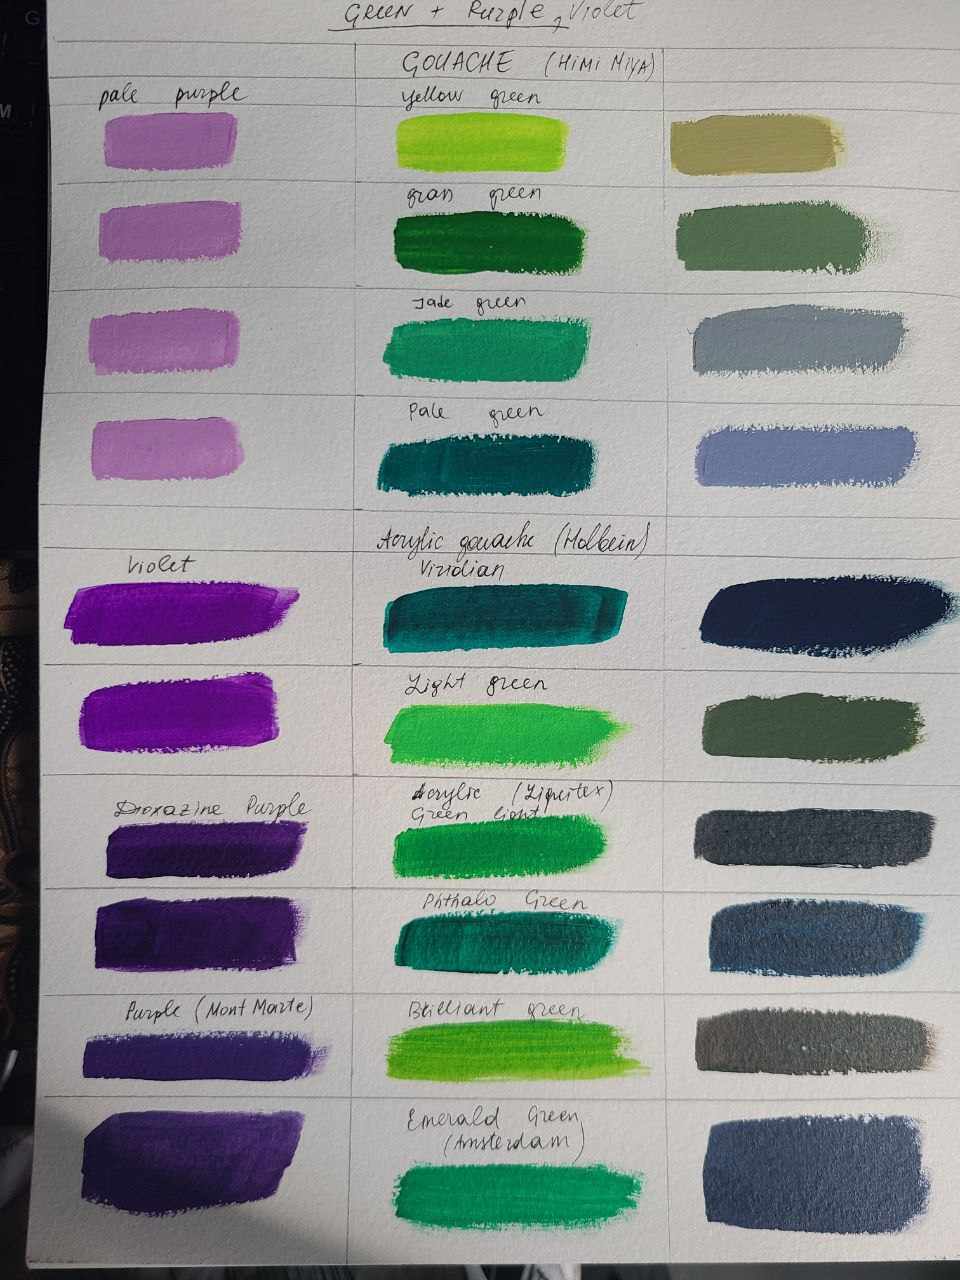 Green + Purple, Violet
GOUACHE (HIMI MIYA)
pale purple yellow green
gran green
Jade green
Pale green
Acrylic gouache (Holbein)
Violet Viridian
Light green
Acrylic (Liquitex)
Dioxazine Purple Green light
Phthalo Green
Purple (Mont Marte) Brilliant green
Emerald Green
(Amsterdam)